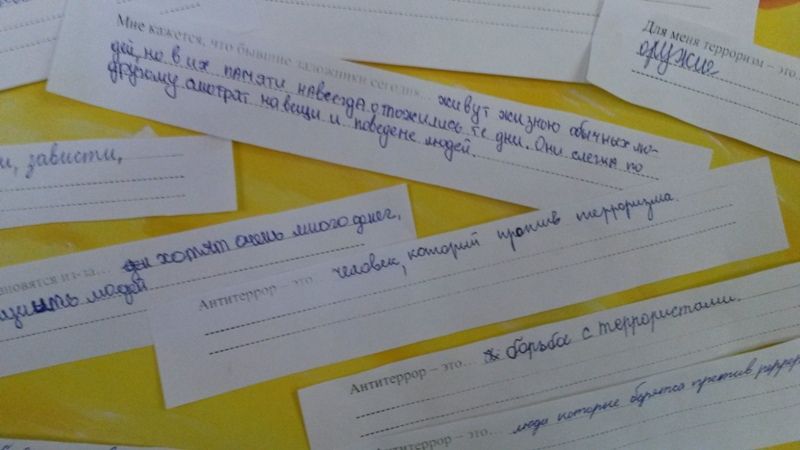 Мне кажется, что бывшие заложники сегодня... живут жизною обычных лю-
дей, но в их памяти навсегда отложились те дни. Они слегка по
другому смотрат на вещи и поведене людей.
Для меня терроризм – это
оружие
и, зависти,
ановятся из-за... хотят очень много денег,
людей
Антитеррор – это человек, который против терроризма.
Антитеррор – это... борьба с террористами.
Антитеррор – это... люди которые борятся против